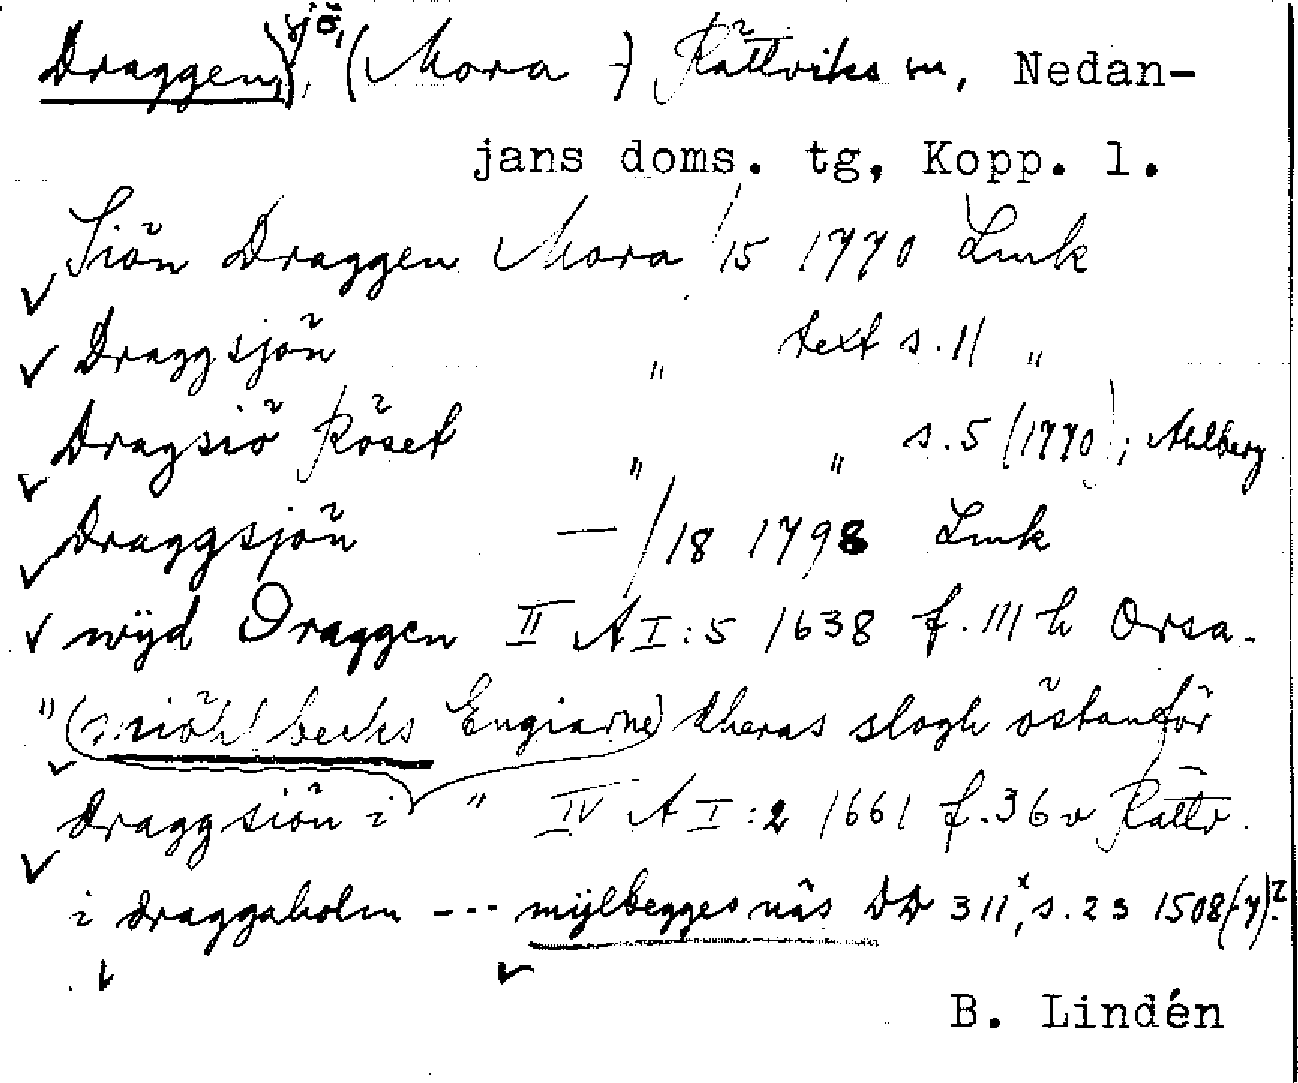 Draggen, sjö, (Mora -) Rättviks sn, Nedan-
jans doms. tg, Kopp. l.
Siön Draggen Mora /15 1770 Lmk
Draggsjön " text s. 11 "
Dragsiö Röset " " s. 5 (1770); Ahlberg
Draggsjön — /18 1798 Lmk
wÿd Draggen II A I:5 1638 f. 111 h Orsa.
" (miöhl becks Engiarne) theras slogh östanför
draggsiön i " IV A I:2 1661 f. 36 v Rättv.
i draggaholm --- mÿlbegges näs DD 311, s. 23 1508(-7)?
B. Lindén